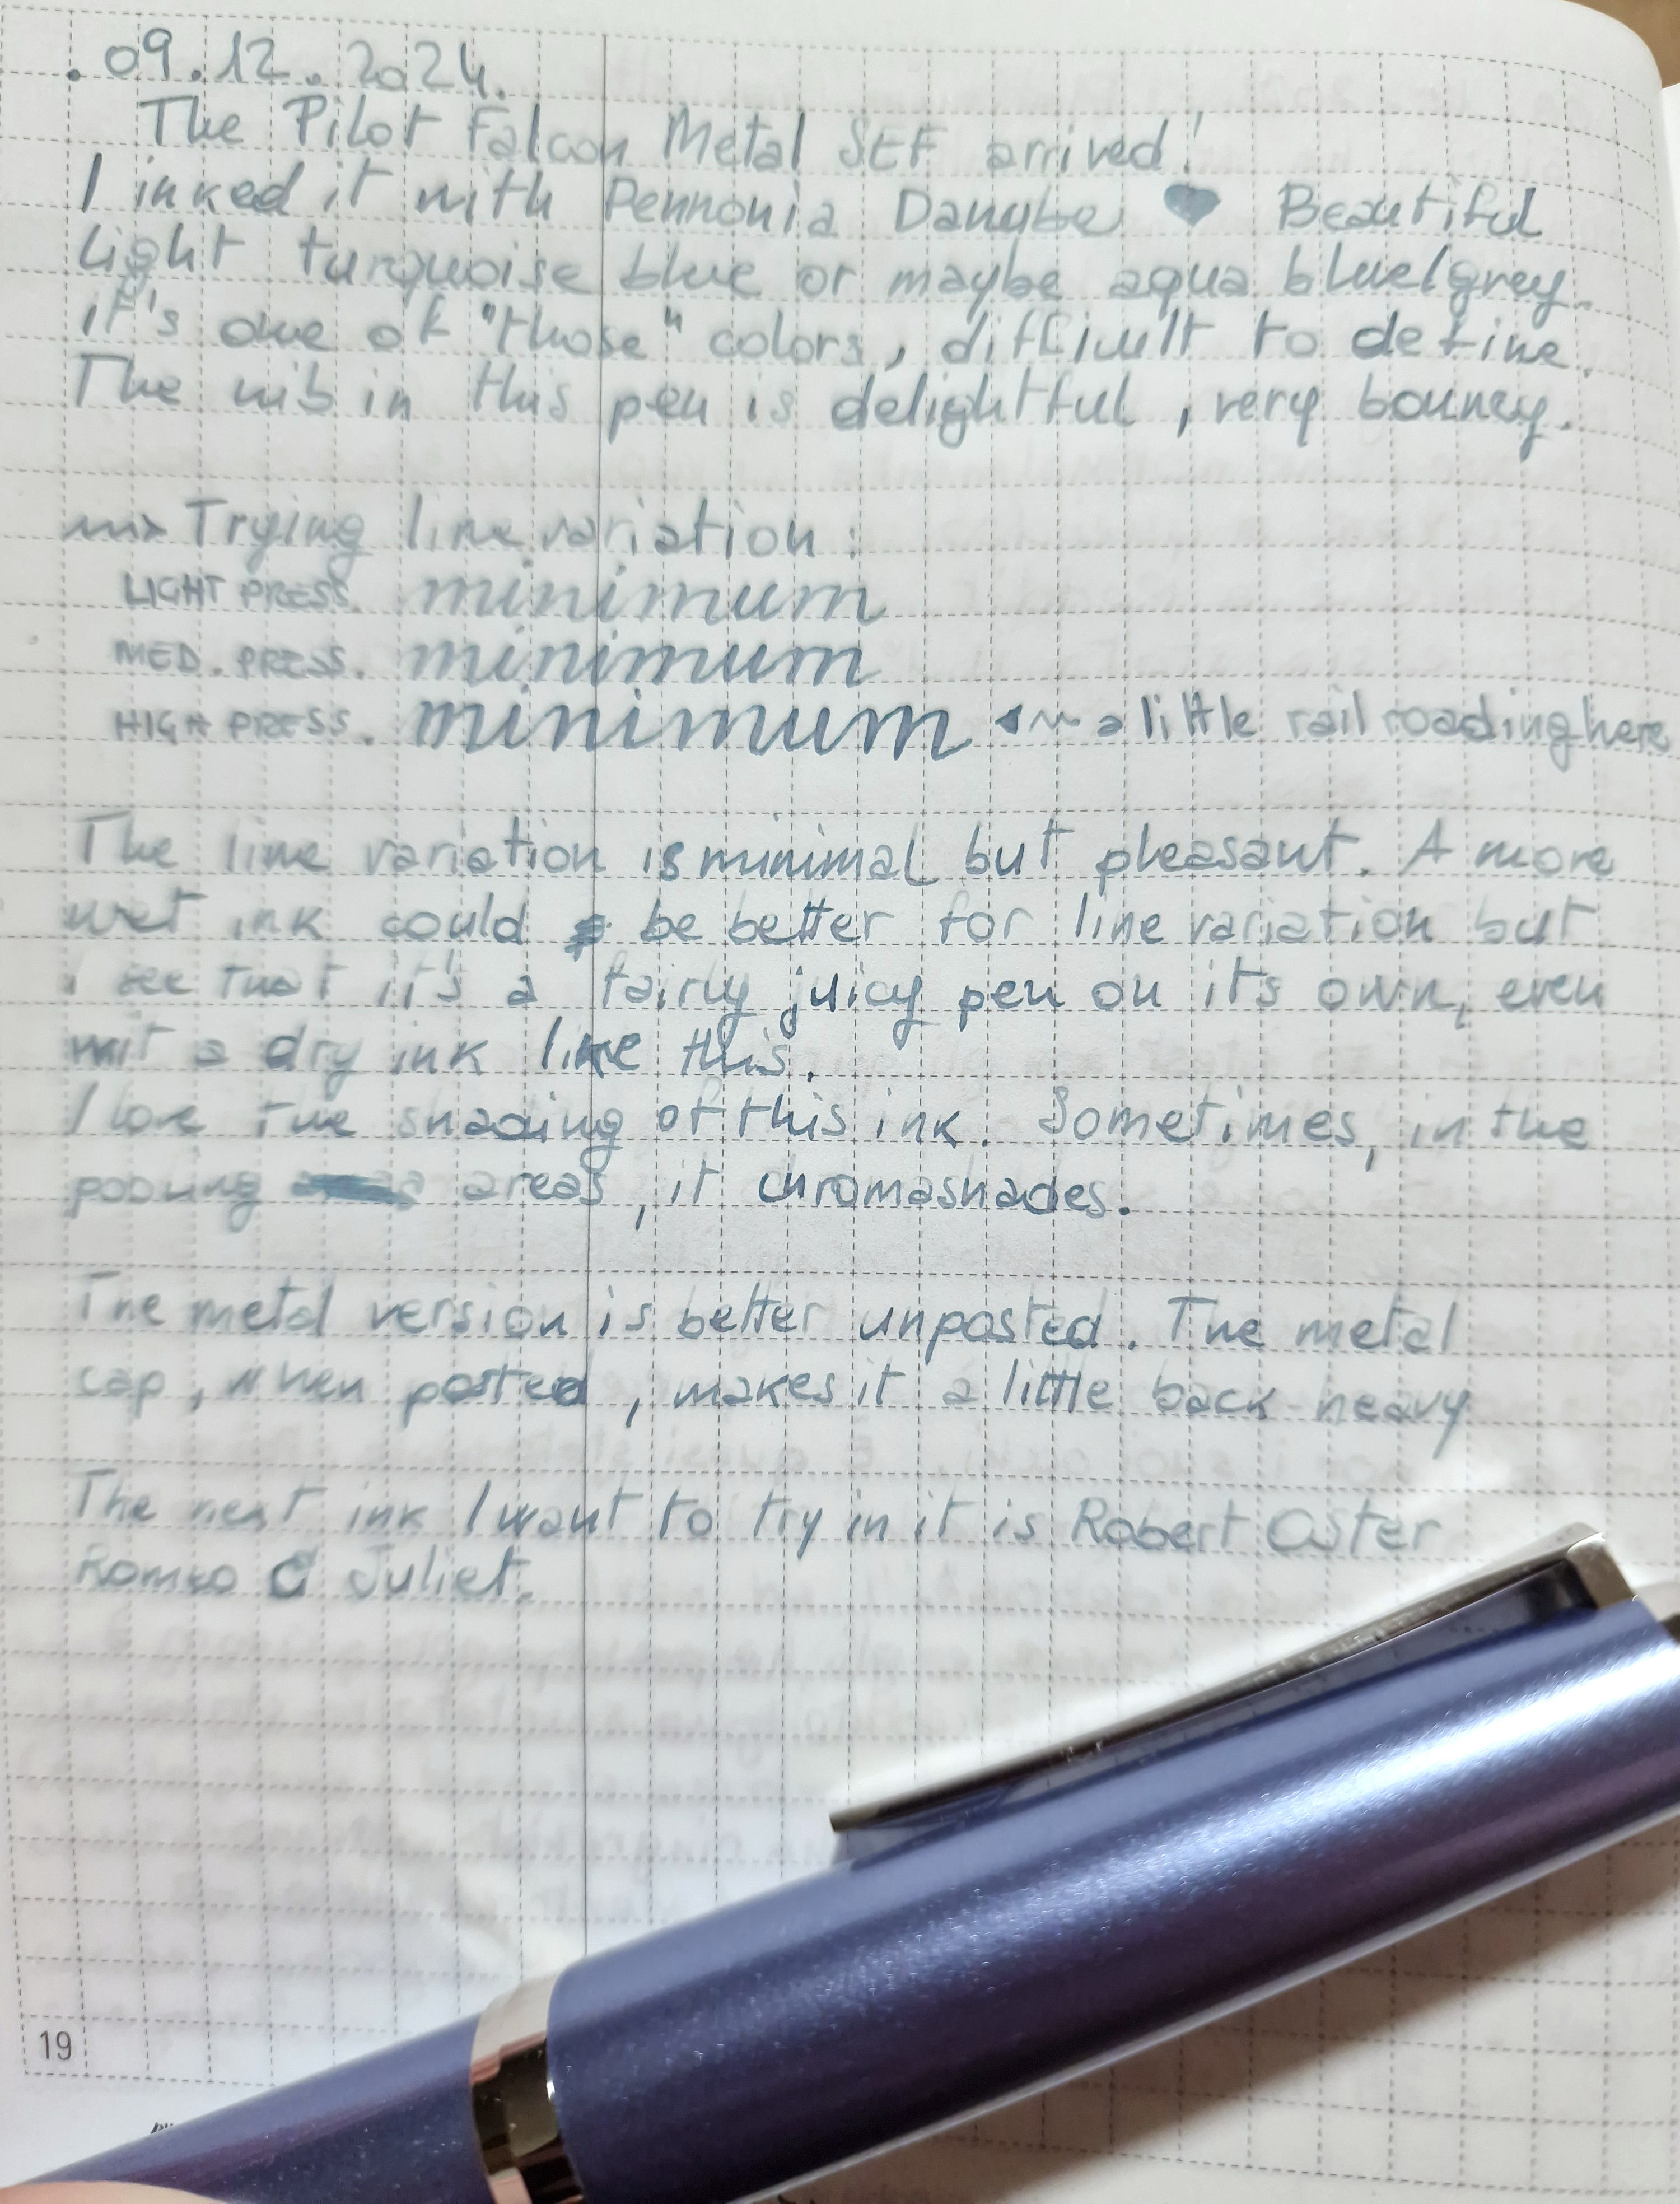 . 09.12.2024.
The Pilot Falcon Metal SEF arrived!
I inked it with Pennonia Danube ♥ Beautiful
light turquoise blue or maybe aqua blue/grey.
it's one of "those" colors, difficult to define.
The nib in this pen is delightful, very bouncy.
Trying line variation:
LIGHT PRESS. minimum
MED. PRESS. minimum
HIGH PRESS. minimum a little railroading here
The line variation is minimal but pleasant. A more
wet ink could be better for line variation but
I see that it's a fairly juicy pen on its own, even
wit a dry ink like this.
I love the shading of this ink. Sometimes, in the
pooling areas, it chromashades.
The metal version is better unposted. The metal
cap, when posted, makes it a little back heavy
The next ink I want to try in it is Robert Oster
Romeo & Juliet.
19